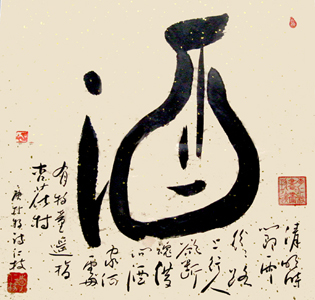 酒
清明時
節雨
紛紛路
上行人
欲斷
魂借
问酒
家何
處
有牧童遥指
杏花村